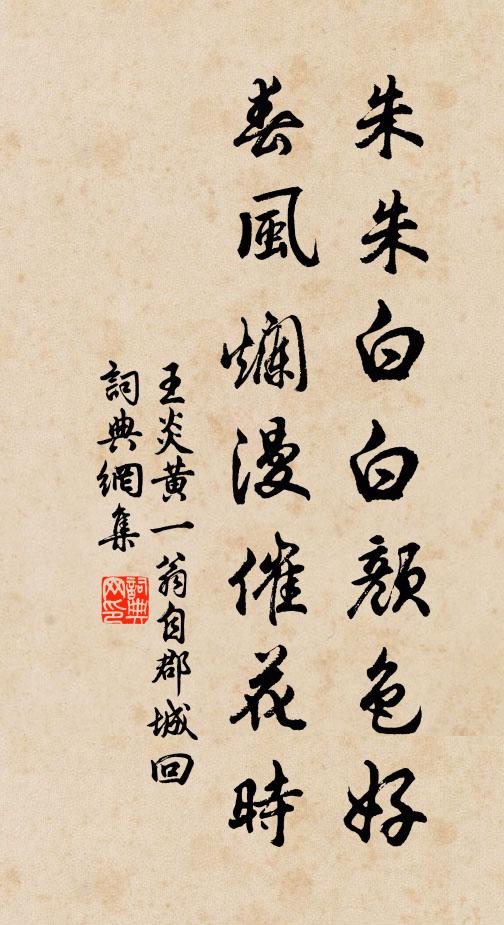 朱朱白白顏色好
春風爛漫催花時
王炎黃一翁自郡城回
詞典網集
詞典網印